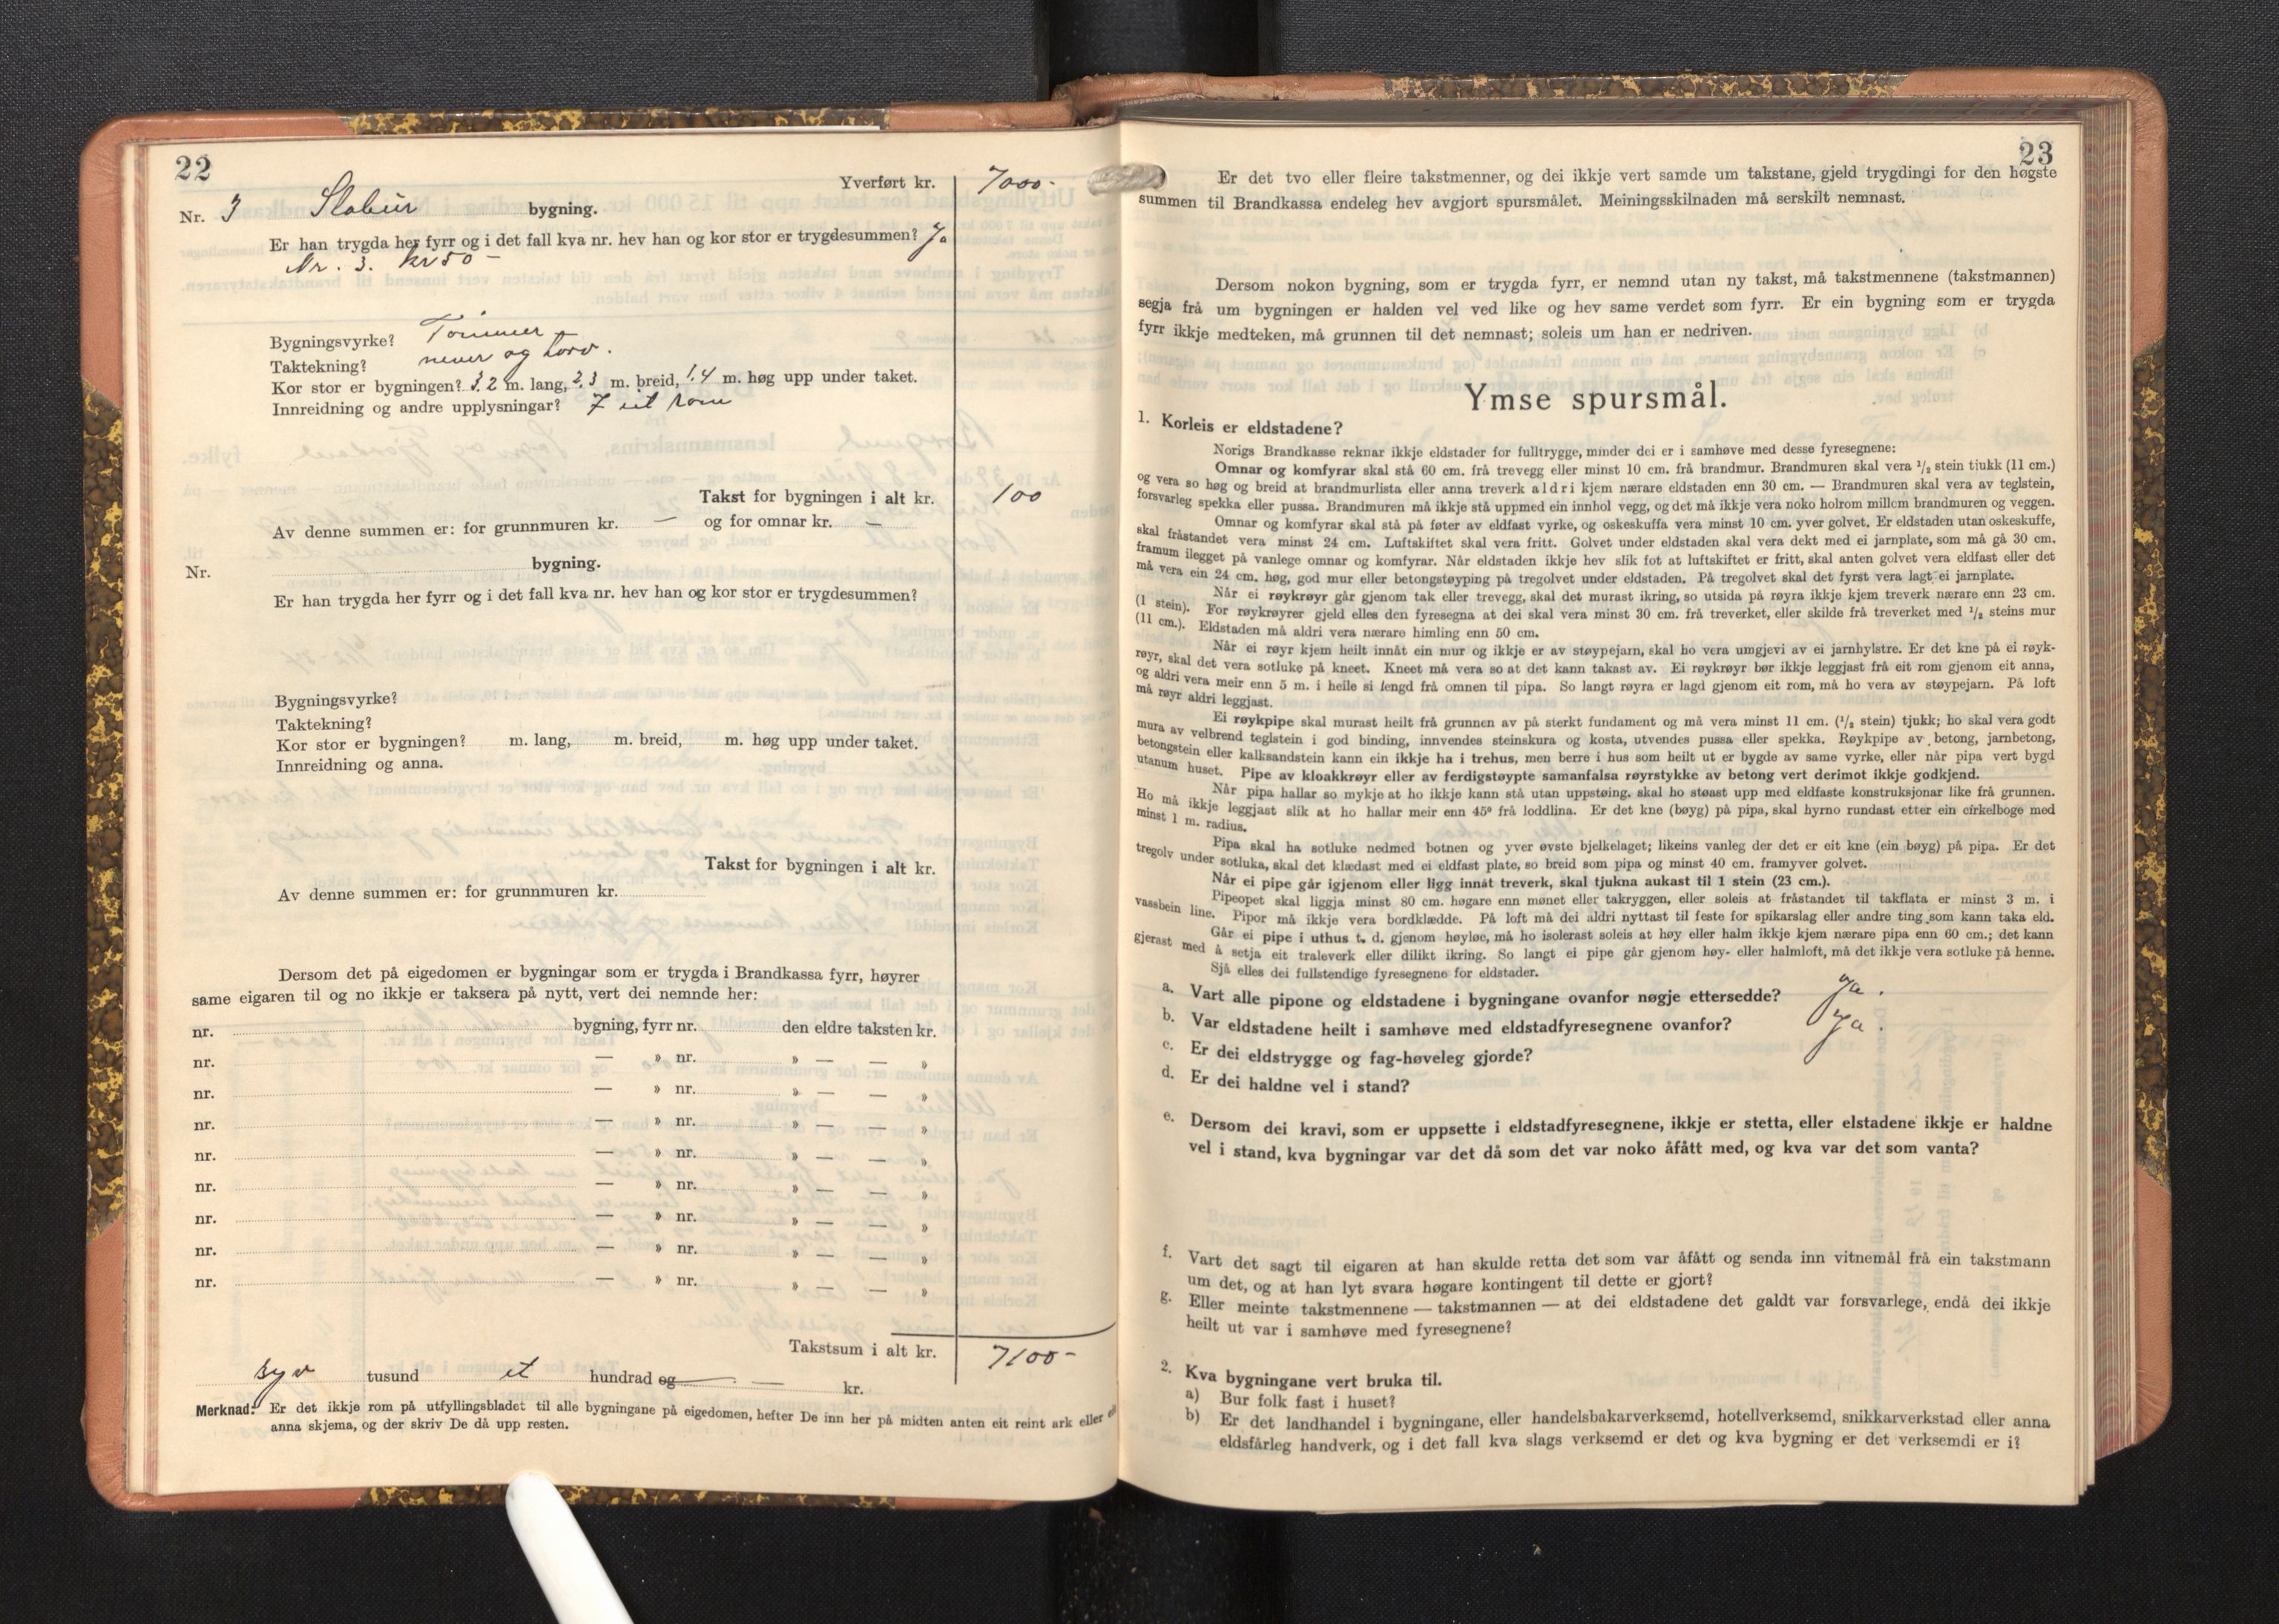 22
Yverført kr. 7000-
Nr. 3 Stabur bygning.
Er han trygda her fyrr og i det fall kva nr. hev han og kor stor er trygdesummen? Ja
Nr. 3. kr 50 -
Bygningsvyrke? Tømmer
Taktekning? never og torv.
Kor stor er bygningen? 3.2 m. lang, 2,3 m. breid, 1.4 m. høg upp under taket.
Innreidning og andre upplysningar? I eit rom
Takst for bygningen i alt kr. 100
Av denne summen er: for grunnmuren kr. — og for omnar kr. —
Nr. bygning.
Er han trygda her fyrr og i det fall kva nr. hev han og kor stor er trygdesummen?
Bygningsvyrke?
Taktekning?
Kor stor er bygningen? m. lang, m. breid, m. høg upp under taket.
Innreidning og anna.
Takst for bygningen i alt kr.
Av denne summen er: for grunnmuren kr.
Dersom det på eigedomen er bygningar som er trygda i Brandkassa fyrr, høyrer
same eigaren til og no ikkje er taksera på nytt, vert dei nemnde her:
nr. bygning, fyrr nr. den eldre taksten kr.
nr. — » nr. » — — »
nr. — » nr. » — — »
nr. — » nr. » — — »
nr. — » nr. » — — »
nr. — » nr. » — — »
nr. — » nr. » — — »
nr. — » nr. » — — »
nr. — » nr. » — — »
Takstsum i alt kr. 7100-
syv tusund et hundrad og — kr.
Merknad: Er det ikkje rom på utfyllingsbladet til alle bygningane på eigedomen, hefter De inn her på midten anten eit reint ark eller
anna skjema, og der skriv De då upp resten.
23
Er det tvo eller fleire takstmenner, og dei ikkje vert samde um takstane, gjeld trygdingi for den høgste
summen til Brandkassa endeleg hev avgjort spursmålet. Meiningsskilnaden må serskilt nemnast.
Dersom nokon bygning, som er trygda fyrr, er nemnd utan ny takst, må takstmennene (takstmannen)
segja frå um bygningen er halden vel ved like og hev same verdet som fyrr. Er ein bygning som er trygda
fyrr ikkje medteken, må grunnen til det nemnast; soleis um han er nedriven.
Ymse spursmål.
1. Korleis er eldstadene?
Norigs Brandkasse reknar ikkje eldstader for fulltrygge, minder dei er i samhøve med desse fyresegnene:
Omnar og komfyrar skal stå 60 cm. frå trevegg eller minst 10 cm. frå brandmur. Brandmuren skal vera 1/2 stein tjukk (11 cm.)
og vera so høg og breid at brandmurlista eller anna treverk aldri kjem nærare eldstaden enn 30 cm. — Brandmuren skal vera av teglstein,
forsvarleg spekka eller pussa. Brandmuren må ikkje stå uppmed ein innhol vegg, og det må ikkje vera noko holrom millom brandmuren og veggen.
Omnar og komfyrar skal stå på føter av eldfast vyrke, og oskeskuffa vera minst 10 cm. yver golvet. Er eldstaden utan oskeskuffe,
skal fråstandet vera minst 24 cm. Luftskiftet skal vera fritt. Golvet under eldstaden skal vera dekt med ei jarnplate, som må gå 30 cm.
framum ilegget på vanlege omnar og komfyrar. Når eldstaden ikkje hev slik fot at luftskiftet er fritt, skal anten golvet vera eldfast eller det
må vera ein 24 cm. høg, god mur eller betongstøyping på tregolvet under eldstaden. På tregolvet skal det fyrst vera lagt ei jarnplate.
Når ei røykrøyr går gjenom tak eller trevegg, skal det murast ikring, so utsida på røyra ikkje kjem treverk nærare enn 23 cm.
(1 stein). For røykrøyrer gjeld elles den fyresegna at dei skal vera minst 30 cm. frå treverket, eller skilde frå treverket med 1/2 steins mur
(11 cm.). Eldstaden må aldri vera nærare himling enn 50 cm.
Når ei røyr kjem heilt innåt ein mur og ikkje er av støypejarn, skal ho vera umgjevi av ei jarnhylstre. Er det kne på ei røyk-
røyr, skal det vera sotluke på kneet. Kneet må vera so at det kann takast av. Ei røykrøyr bør ikkje leggjast frå eit rom gjenom eit anna,
og aldri vera meir enn 5 m. i heile si lengd frå omnen til pipa. So langt røyra er lagd gjenom eit rom, må ho vera av støypejarn. På loft
må røyr aldri leggjast.
Ei røykpipe skal murast heilt frå grunnen av på sterkt fundament og må vera minst 11 cm. (1/2 stein) tjukk; ho skal vera godt
mura av velbrend teglstein i god binding, innvendes steinskura og kosta, utvendes pussa eller spekka. Røykpipe av betong, jarnbetong,
betongstein eller kalksandstein kann ein ikkje ha i trehus, men berre i hus som heilt ut er bygde av same vyrke, eller når pipa vert bygd
utanum huset. Pipe av kloakkrøyr eller av ferdigstøypte samanfalsa røyrstykke av betong vert derimot ikkje godkjend.
Når pipa hallar so mykje at ho ikkje kann stå utan uppstøing, skal ho støast upp med eldfaste konstruksjonar like frå grunnen.
Ho må ikkje leggjast slik at ho hallar meir enn 45° frå loddlina. Er det kne (bøyg) på pipa, skal hyrno rundast etter ein cirkelboge med
minst 1 m. radius.
Pipa skal ha sotluke nedmed botnen og yver øvste bjelkelaget; likeins vanleg der det er eit kne (ein bøyg) på pipa. Er det
tregolv under sotluka, skal det klædast med ei eldfast plate, so breid som pipa og minst 40 cm. framyver golvet.
Når ei pipe går igjenom eller ligg innåt treverk, skal tjukna aukast til 1 stein (23 cm.).
Pipeopet skal liggja minst 80 cm. høgare enn mønet eller takryggen, eller soleis at fråstandet til takflata er minst 3 m. i
vassbein line. Pipor må ikkje vera bordklædde. På loft må dei aldri nyttast til feste for spikarslag eller andre ting som kann taka eld.
Går ei pipe i uthus t. d. gjenom høyløe, må ho isolerast soleis at høy eller halm ikkje kjem nærare pipa enn 60 cm.; det kann
gjerast med å setja eit traleverk eller dilikt ikring. So langt ei pipe går gjenom høy- eller halmloft, må det ikkje vera sotluke på henne.
Sjå elles dei fullstendige fyresegnene for eldstader.
a. Vart alle pipone og eldstadene i bygningane ovanfor nøgje ettersedde? Ja.
b. Var eldstadene heilt i samhøve med eldstadfyresegnene ovanfor? Ja.
c. Er dei eldstrygge og fag-høveleg gjorde?
d. Er dei haldne vel i stand?
e. Dersom dei kravi, som er uppsette i eldstadfyresegnene, ikkje er stetta, eller elstadene ikkje er haldne
vel i stand, kva bygningar var det då som det var noko åfått med, og kva var det som vanta?
f. Vart det sagt til eigaren at han skulde retta det som var åfått og senda inn vitnemål frå ein takstmann
um det, og at han lyt svara høgare kontingent til dette er gjort?
g. Eller meinte takstmennene — takstmannen — at dei eldstadene det galdt var forsvarlege, endå dei ikkje
heilt ut var i samhøve med fyresegnene?
2. Kva bygningane vert bruka til.
a) Bur folk fast i huset?
b) Er det landhandel i bygningane, eller handelsbakarverksemd, hotellverksemd, snikkarverkstad eller anna
eldsfårleg handverk, og i det fall kva slags verksemd er det og kva bygning er det verksemdi er i?